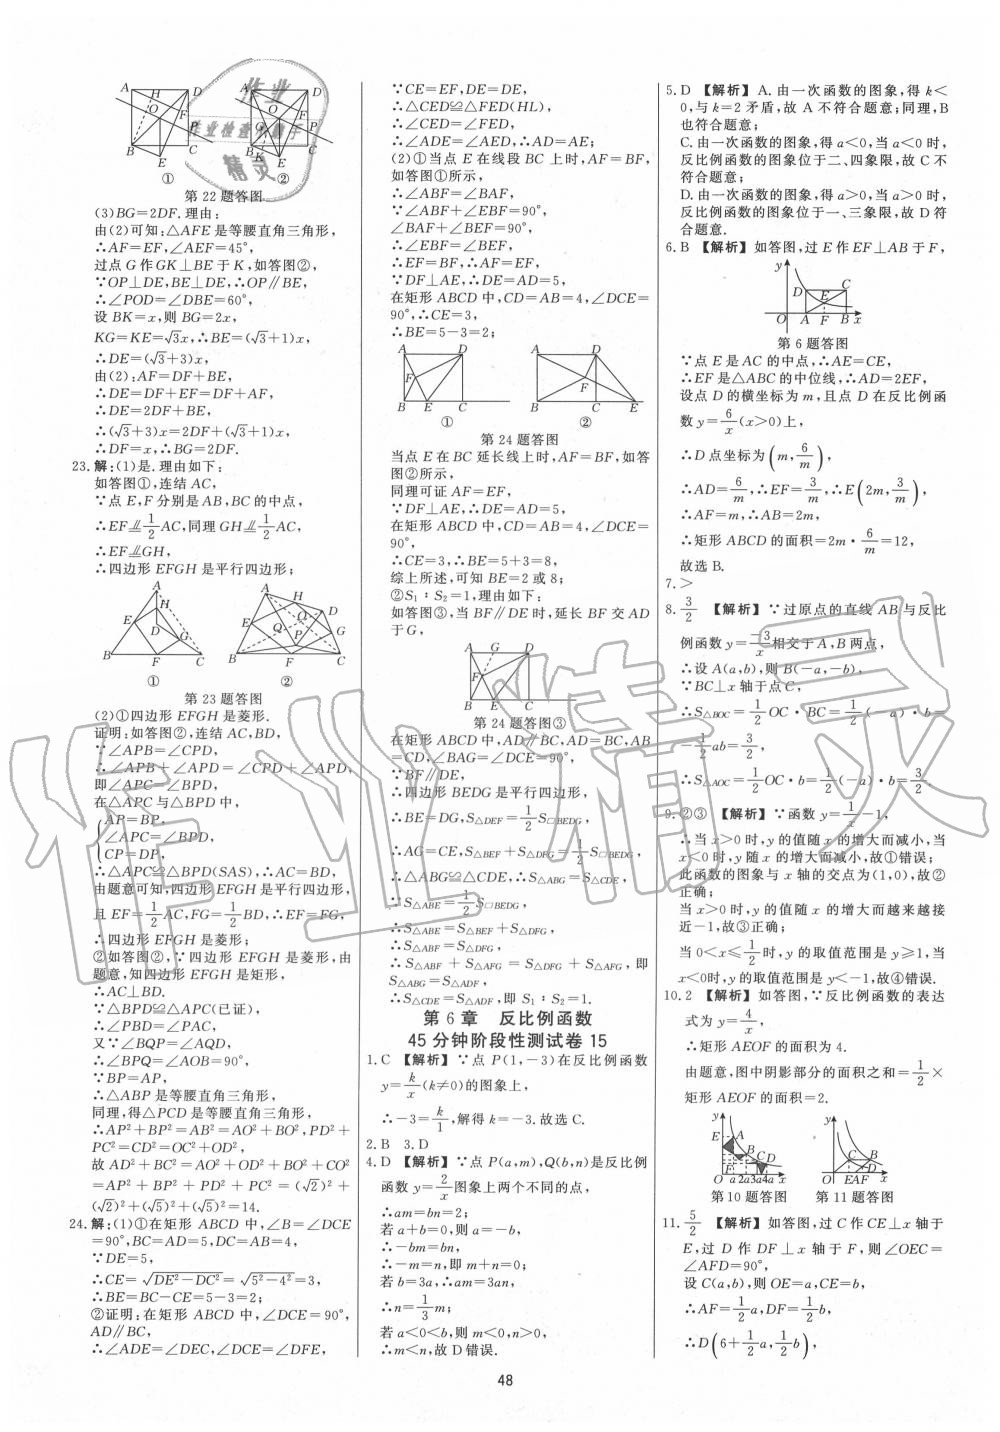 第22题答图
(3)BG=2DF.理由:
由(2)可知:△AFE是等腰直角三角形,
∴AF=EF,∠AEF=45°,
过点G作GK⊥BE于K,如答图②,
∵OP⊥DE,BE⊥DE,∴OP∥BE,
∴∠POD=∠DBE=60°,
设BK=x,则BG=2x,
KG=KE=√3x,∴BE=(√3+1)x,
∴DE=(√3+3)x,
由(2):AF=DF+BE,
∴DE=DF+EF=DF+AF,
∴DE=2DF+BE,
∴(√3+3)x=2DF+(√3+1)x,
∴DF=x,∴BG=2DF.
23.解:(1)是.理由如下:
如答图①,连结AC,
∵点E,F分别是AB,BC的中点,
∴EF⫽1/2AC,同理GH⫽1/2AC,
∴EF⫽GH,
∴四边形EFGH是平行四边形;
① ②
第23题答图
(2)①四边形EFGH是菱形.
证明:如答图②,连结AC,BD,
∵∠APB=∠CPD,
∴∠APB+∠APD=∠CPD+∠APD,
即∠APC=∠BPD,
在△APC与△BPD中,
{AP=BP,
∠APC=∠BPD,
CP=DP,
∴△APC≌△BPD(SAS),∴AC=BD,
由题意可知,四边形EFGH是平行四边形,
且EF=1/2AC,FG=1/2BD,∴EF=FG,
∴四边形EFGH是菱形;
②如答图②,∵四边形EFGH是菱形,由
题意,知四边形EFGH是矩形,
∴AC⊥BD.
∵△BPD≌△APC(已证),
∴∠PBD=∠PAC,
又∵∠BQP=∠AQO,
∴∠BPQ=∠AOB=90°,
∵BP=AP,
∴△ABP是等腰直角三角形,
同理,得△PCD是等腰直角三角形,
∴AP²+BP²=AB²=AO²+BO²,PD²+
PC²=CD²=OC²+OD²
故AD²+BC²=AO²+OD²+BO²+CO²
=AP²+BP²+PD²+PC²=(√2)²+
(√2)²+(√5)²+(√5)²=14.
24.解:(1)①在矩形ABCD中,∠B=∠DCE
=90°,BC=AD=5,DC=AB=4,
∵DE=5,
∴CE=√DE²-DC²=√5²-4²=3,
∴BE=BC-CE=5-3=2;
②证明:在矩形ABCD中,∠DCE=90°,
AD∥BC,
∴∠ADE=∠DEC,∠DCE=∠DFE,
∵CE=EF,DE=DE,
∴△CED≌△FED(HL),
∴∠CED=∠FED,
∴∠ADE=∠AED,∴AD=AE;
(2)①当点E在线段BC上时,AF=BF,
如答图①所示,
∴∠ABF=∠BAF,
∵∠ABF+∠EBF=90°,
∠BAF+∠BEF=90°,
∴∠EBF=∠BEF,
∴EF=BF,∴AF=EF,
∵DF⊥AE,∴DE=AD=5,
在矩形ABCD中,CD=AB=4,∠DCE=
90°,∴CE=3,
∴BE=5-3=2;
① ②
第24题答图
当点E在BC延长线上时,AF=BF,如答
图②所示,
同理可证AF=EF,
∵DF⊥AE,∴DE=AD=5,
在矩形ABCD中,CD=AB=4,∠DCE=
90°,
∴CE=3,∴BE=5+3=8,
综上所述,可知BE=2或8;
②S₁∶S₂=1,理由如下:
如答图③,当BF∥DE时,延长BF交AD
于G,
第24题答图③
在矩形ABCD中,AD∥BC,AD=BC,AB
=CD,∠BAG=∠DCE=90°,
∵BF∥DE,
∴四边形BEDG是平行四边形,
∴BE=DG,S△DEF=1/2S□BEDG,
∴AG=CE,S△BEF+S△DFG=1/2S□BEDG,
∴△ABG≌△CDE,∴S△ABG=S△CDE,
∵S△ABE=1/2S□BEDG,
∴S△ABE=S△BEF+S△DFG,
∴S△ABF=S△DFG,
∴S△ABF+S△AFG=S△DFG+S△AFG,即
S△ABG=S△ADF,
∴S△CDE=S△ADF,即S₁∶S₂=1.
第6章 反比例函数
45分钟阶段性测试卷15
1.C 【解析】∵点P(1,-3)在反比例函数
y=k/x(k≠0)的图象上,
∴-3=k/1,解得k=-3.故选C.
2.B 3.D
4.D 【解析】∵点P(a,m),Q(b,n)是反比例
函数y=2/x图象上两个不同的点,
∴am=bn=2;
若a+b=0,则a=-b,
∴-bm=bn,
∴-m=n,即m+n=0;
若b=3a,∴am=3an,
∴n=1/3m;
若a<0<b,则m<0,n>0,
∴m<n,故D错误.
5.D 【解析】A.由一次函数的图象,得k<
0,与k=2矛盾,故A不符合题意;同理,B
也符合题意;
C.由一次函数的图象,得a<0,当a<0时,
反比例函数的图象位于二、四象限,故C不
符合题意;
D.由一次函数的图象,得a>0,当a>0时,
反比例函数的图象位于一、三象限,故D符
合题意.
6.B 【解析】如答图,过E作EF⊥AB于F,
第6题答图
∵点E是AC的中点,∴AE=CE,
∴EF是△ABC的中位线,∴AD=2EF,
设点D的横坐标为m,且点D在反比例函
数y=6/x(x>0)上,
∴D点坐标为(m,6/m),
∴AD=6/m,∴EF=3/m,∴E(2m,3/m),
∴AF=m,∴AB=2m,
∴矩形ABCD的面积=2m·6/m=12,
故选B.
7.>
8.3/2 【解析】∵过原点的直线AB与反比
例函数y=-3/x相交于A,B两点,
∴设A(a,b),则B(-a,-b),
∵BC⊥x轴于点C,
∴S△BOC=1/2OC·BC=1/2(-a)·b=
-1/2ab=3/2,
∴S△AOC=1/2OC·b=1/2(-a)·b=3/2.
9.②③ 【解析】∵函数y=1/x-1,
∴当x>0时,y的值随x的增大而减小,当
x<0时,y随x的增大而减小,故①错误;
此函数的图象与x轴的交点为(1,0),故②
正确;
当x>0时,y的值随x的增大而越来越接
近-1,故③正确;
当0<x≤1/2时,y的取值范围是y≥1,当
x<0时,y的取值范围是y<-1,故④错误.
10.2 【解析】如答图,∵反比例函数的表达
式为y=4/x,
∴矩形AEOF的面积为4.
由题意,图中阴影部分的面积之和=1/2×
矩形AEOF的面积=2.
第10题答图 第11题答图
11.5/2 【解析】如答图,过C作CE⊥x轴于
E,过D作DF⊥x轴于F,则∠OEC=
∠AFD=90°,
设C(a,b),则OE=a,CE=b,
∴AF=1/2a,DF=1/2b,
∴D(6+1/2a,1/2b),
48
作业精灵